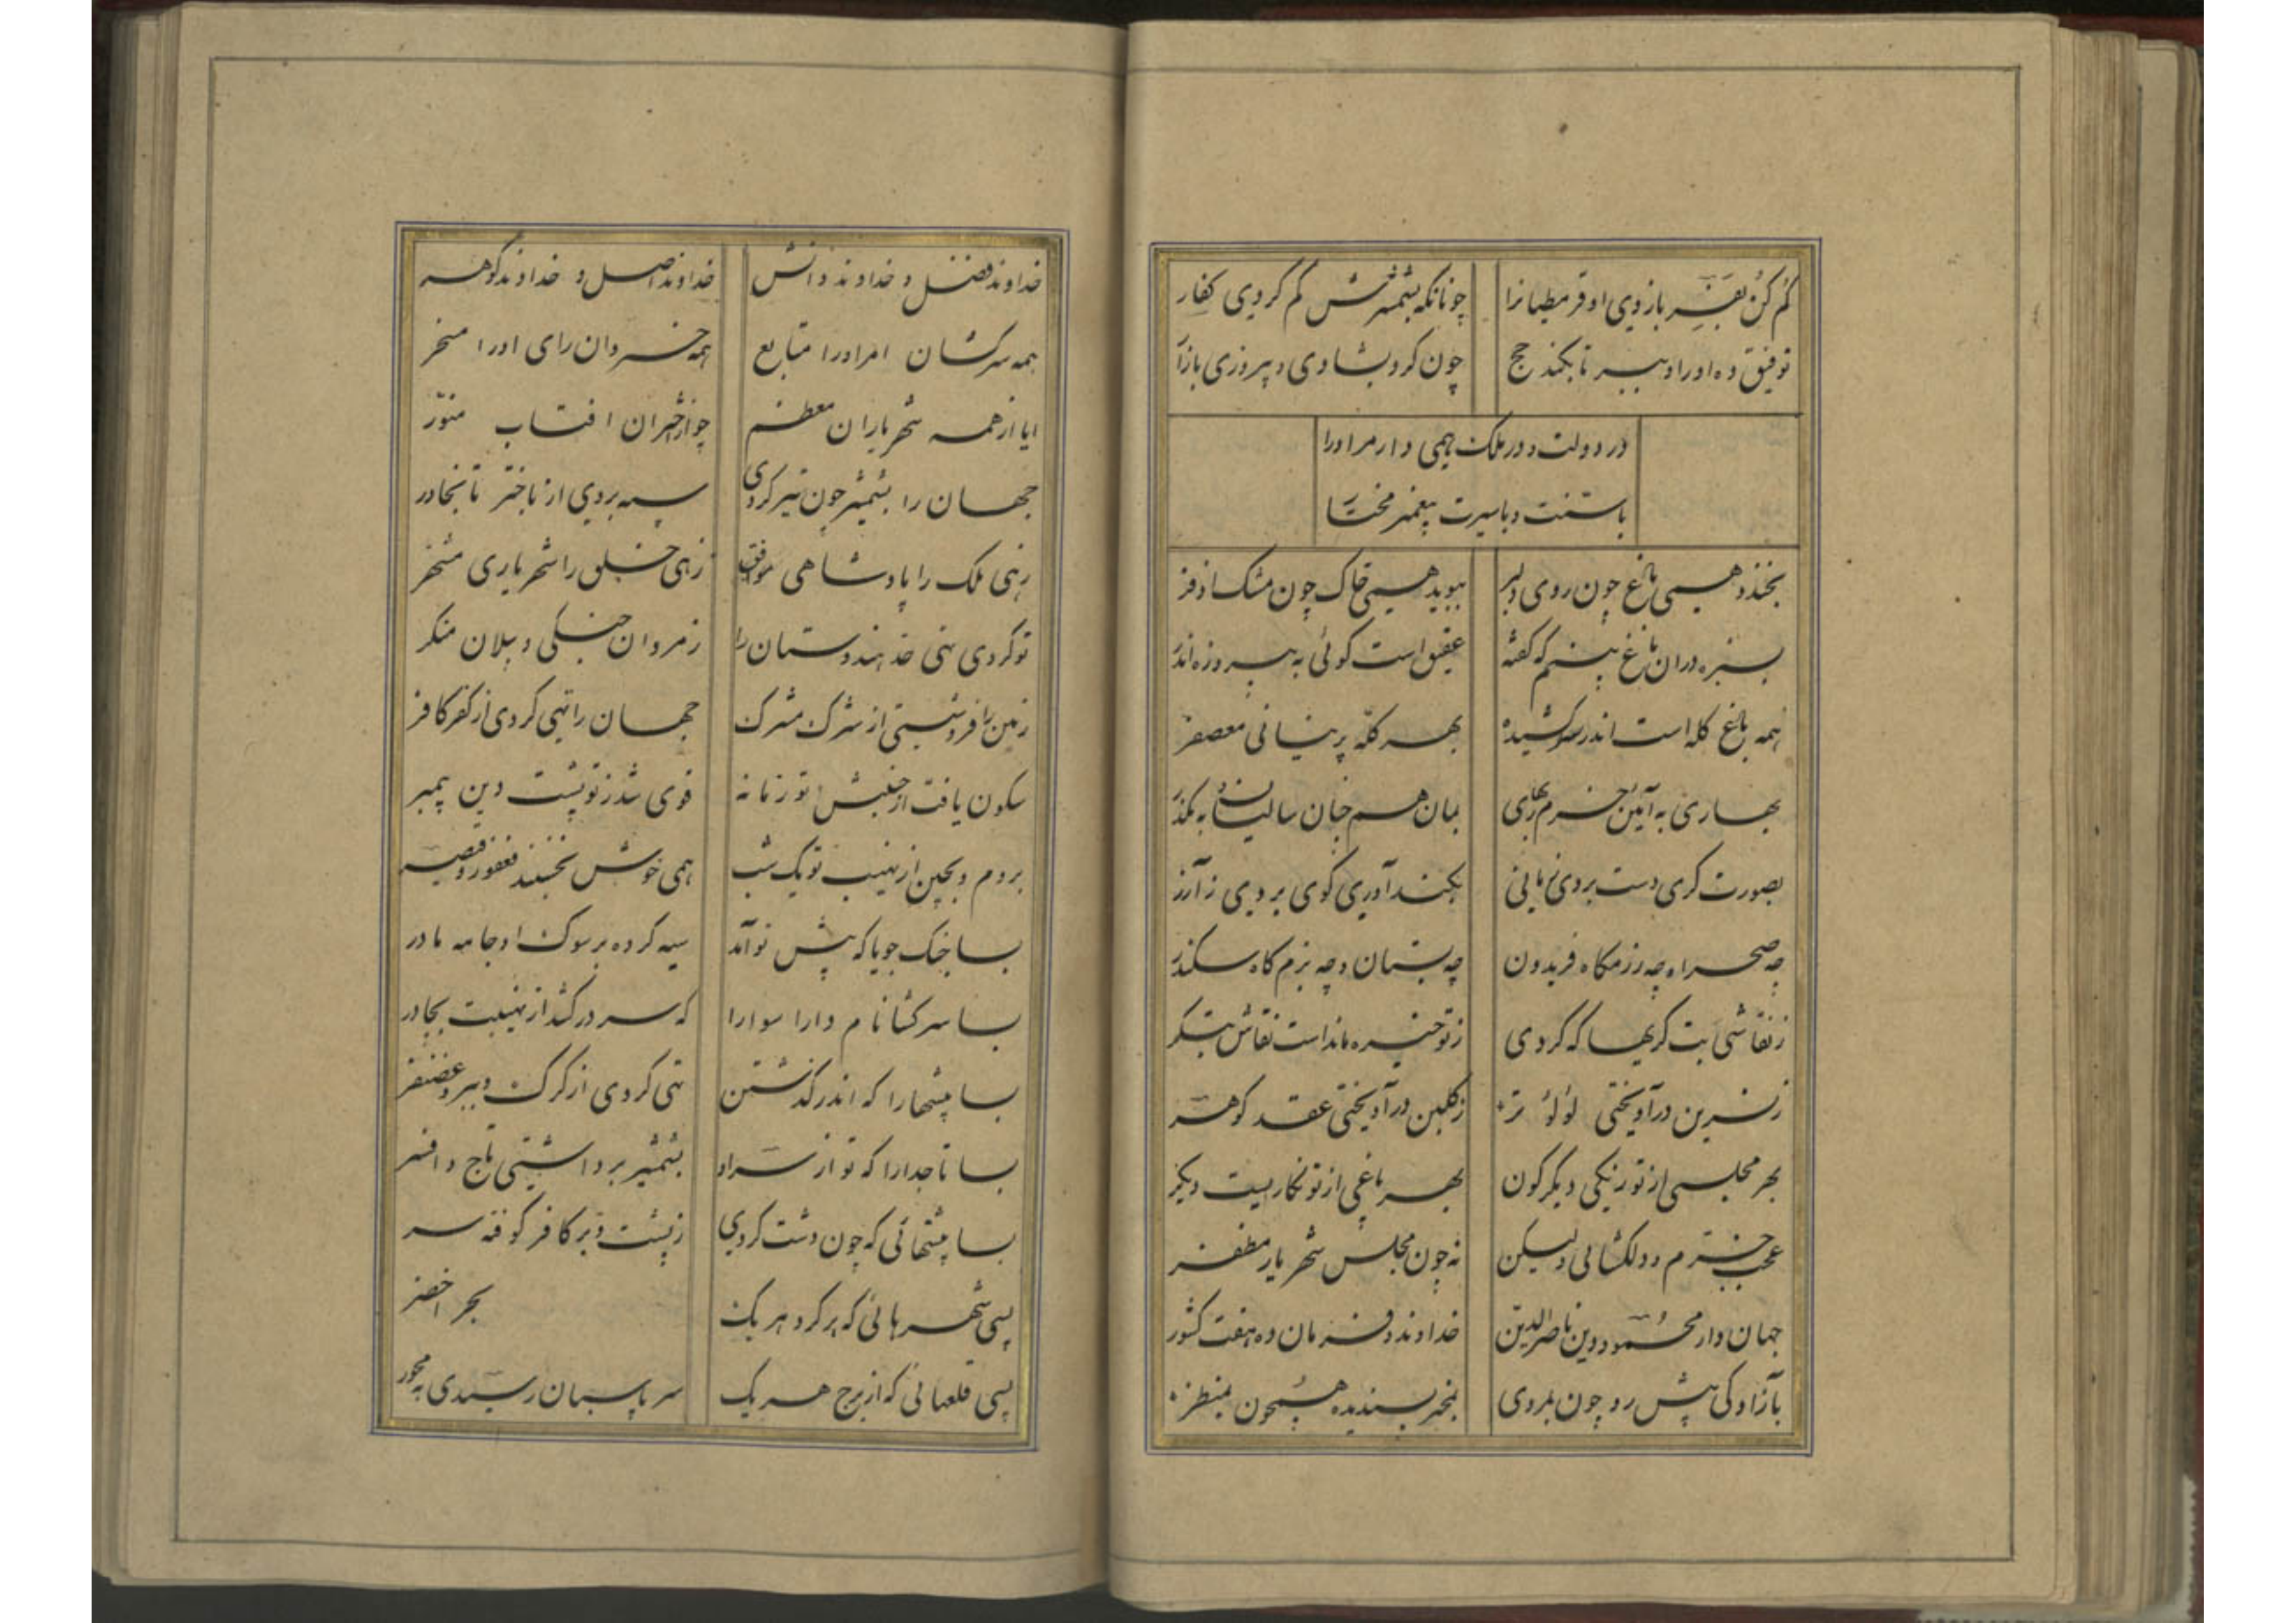 گم کن بقنر بازوی او قرمطیانرا
چونانکه بشمشرش گم کردی کفار
توفیق ده او را و ببر تا بکند حج
چون کرد بشادی و پیروزی بازآ
در دولت و در ملک همی دار مر او را
با سنت و با سیرت پیغمبر مختا
بخندد همی باغ چون روی دلبر
ببوید همی خاک چون مشک اذفر
بسبزه درون باغ بینم که گفته
عقیق است گوئی به پیروزه اندر
همه باغ کله است اندر کشیده
بهر کله پرنیانی معصفر
بهاری به آیین خرم بهاری
بمان همچنان سالیان به مگذر
بصورت گری دست بردی ز مانی
بکند آوری گوی بردی ز آزر
چه صحرا و چه رزمگاه فریدون
چه بستان و چه بزم گاه سکندر
ز نقاشی بت گریها که کردی
ز تو خیره ماندست نقاش بتگر
ز نسرین درآویختی لؤلؤ تر
ز گلبن درآویختی عقد گوهر
بهر مجلسی از تو رنگی دیگرگون
بهر باغی از تو نگاریست دیگر
عجب خرم و دلگشائی ولیکن
نه چون مجلس شهریار مظفر
جهان دار محمود دین ناصرالدین
خداوند و فرمان ده هفت کشور
بآزادگی پیش رو چون بمردی
بمخبر پسندیده همچون بمنظر
خداوند فضل و خداوند دانش
خداوند اصل و خداوند گوهر
همه سرکشان امر او را متابع
همه خسروان رای او را مسخر
ایا از همه شهریاران معظم
چو از اختران افتاب منور
جهان را بشمشیر چون تیر کردی
سپه بردی از باختر تا بخاور
زهی ملک را پادشاهی موفق
زهی خلق را شهریاری مشهر
تو کردی تهی حد هندوستان را
ز مردان جنگی و پیلان منکر
زمین را فروشستی از شرک مشرک
جهان را تهی کردی از کفر کافر
سکون یافت از جنبش تو زمانه
قوی شد ز تو پشت دین پیمبر
بروم و بچین از نهیب تو یک شب
همی خوش نخسبند فغفور و قیصر
بسا جنگ جویا که پیش تو آمد
سیه کرده بر سوک او جامه مادر
بسا سرکشا نام دارا سوارا
که سر درکشد از نهیبت بچادر
بسا بیشها را که اندر گذشتن
تهی کردی از کرگ و ببر و غضنفر
بسا تاجدارا که تو از سر او
بشمشیر برداشتی تاج و افسر
بسا پشتهائی که چون دشت کردی
ز پشت و بر کافر کوفته سر
بسی شهرهائی که بر گرد هر یک
بحر اخضر
بسی قلعهائی که از برج هر یک
سر پاسبان رسیدی به محور